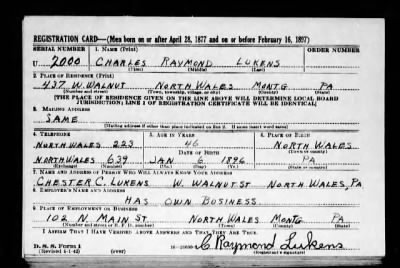 REGISTRATION CARD—(Men born on or after April 28, 1877 and on or before February 16, 1897)
SERIAL NUMBER 1. NAME (Print) ORDER NUMBER
U 2000 CHARLES RAYMOND LUKENS
(First) (Middle) (Last)
2. PLACE OF RESIDENCE (Print)
437 W. WALNUT NORTH WALES MONTG PA
(Number and street) (Town, township, village, or city) (County) (State)
[THE PLACE OF RESIDENCE GIVEN ON THE LINE ABOVE WILL DETERMINE LOCAL BOARD
JURISDICTION; LINE 2 OF REGISTRATION CERTIFICATE WILL BE IDENTICAL]
3. MAILING ADDRESS
SAME
[Mailing address if other than place indicated on line 2. If same insert word same]
4. TELEPHONE 5. AGE IN YEARS 6. PLACE OF BIRTH
NORTH WALES 223 46 NORTH WALES
DATE OF BIRTH (Town or county)
NORTH WALES 639 JAN 6 1896 PA
(Exchange) (Number) (Mo.) (Day) (Yr.) (State or country)
7. NAME AND ADDRESS OF PERSON WHO WILL ALWAYS KNOW YOUR ADDRESS
CHESTER C. LUKENS W. WALNUT ST NORTH WALES, PA
8. EMPLOYER'S NAME AND ADDRESS
HAS OWN BUSINESS
9. PLACE OF EMPLOYMENT OR BUSINESS
102 N. MAIN ST NORTH WALES MONTG PA
(Number and street or R. F. D. number) (Town) (County) (State)
I AFFIRM THAT I HAVE VERIFIED ABOVE ANSWERS AND THAT THEY ARE TRUE.
D. S. S. Form 1
(Revised 4-1-42) (over) C. Raymond Lukens
(Registrant's signature)